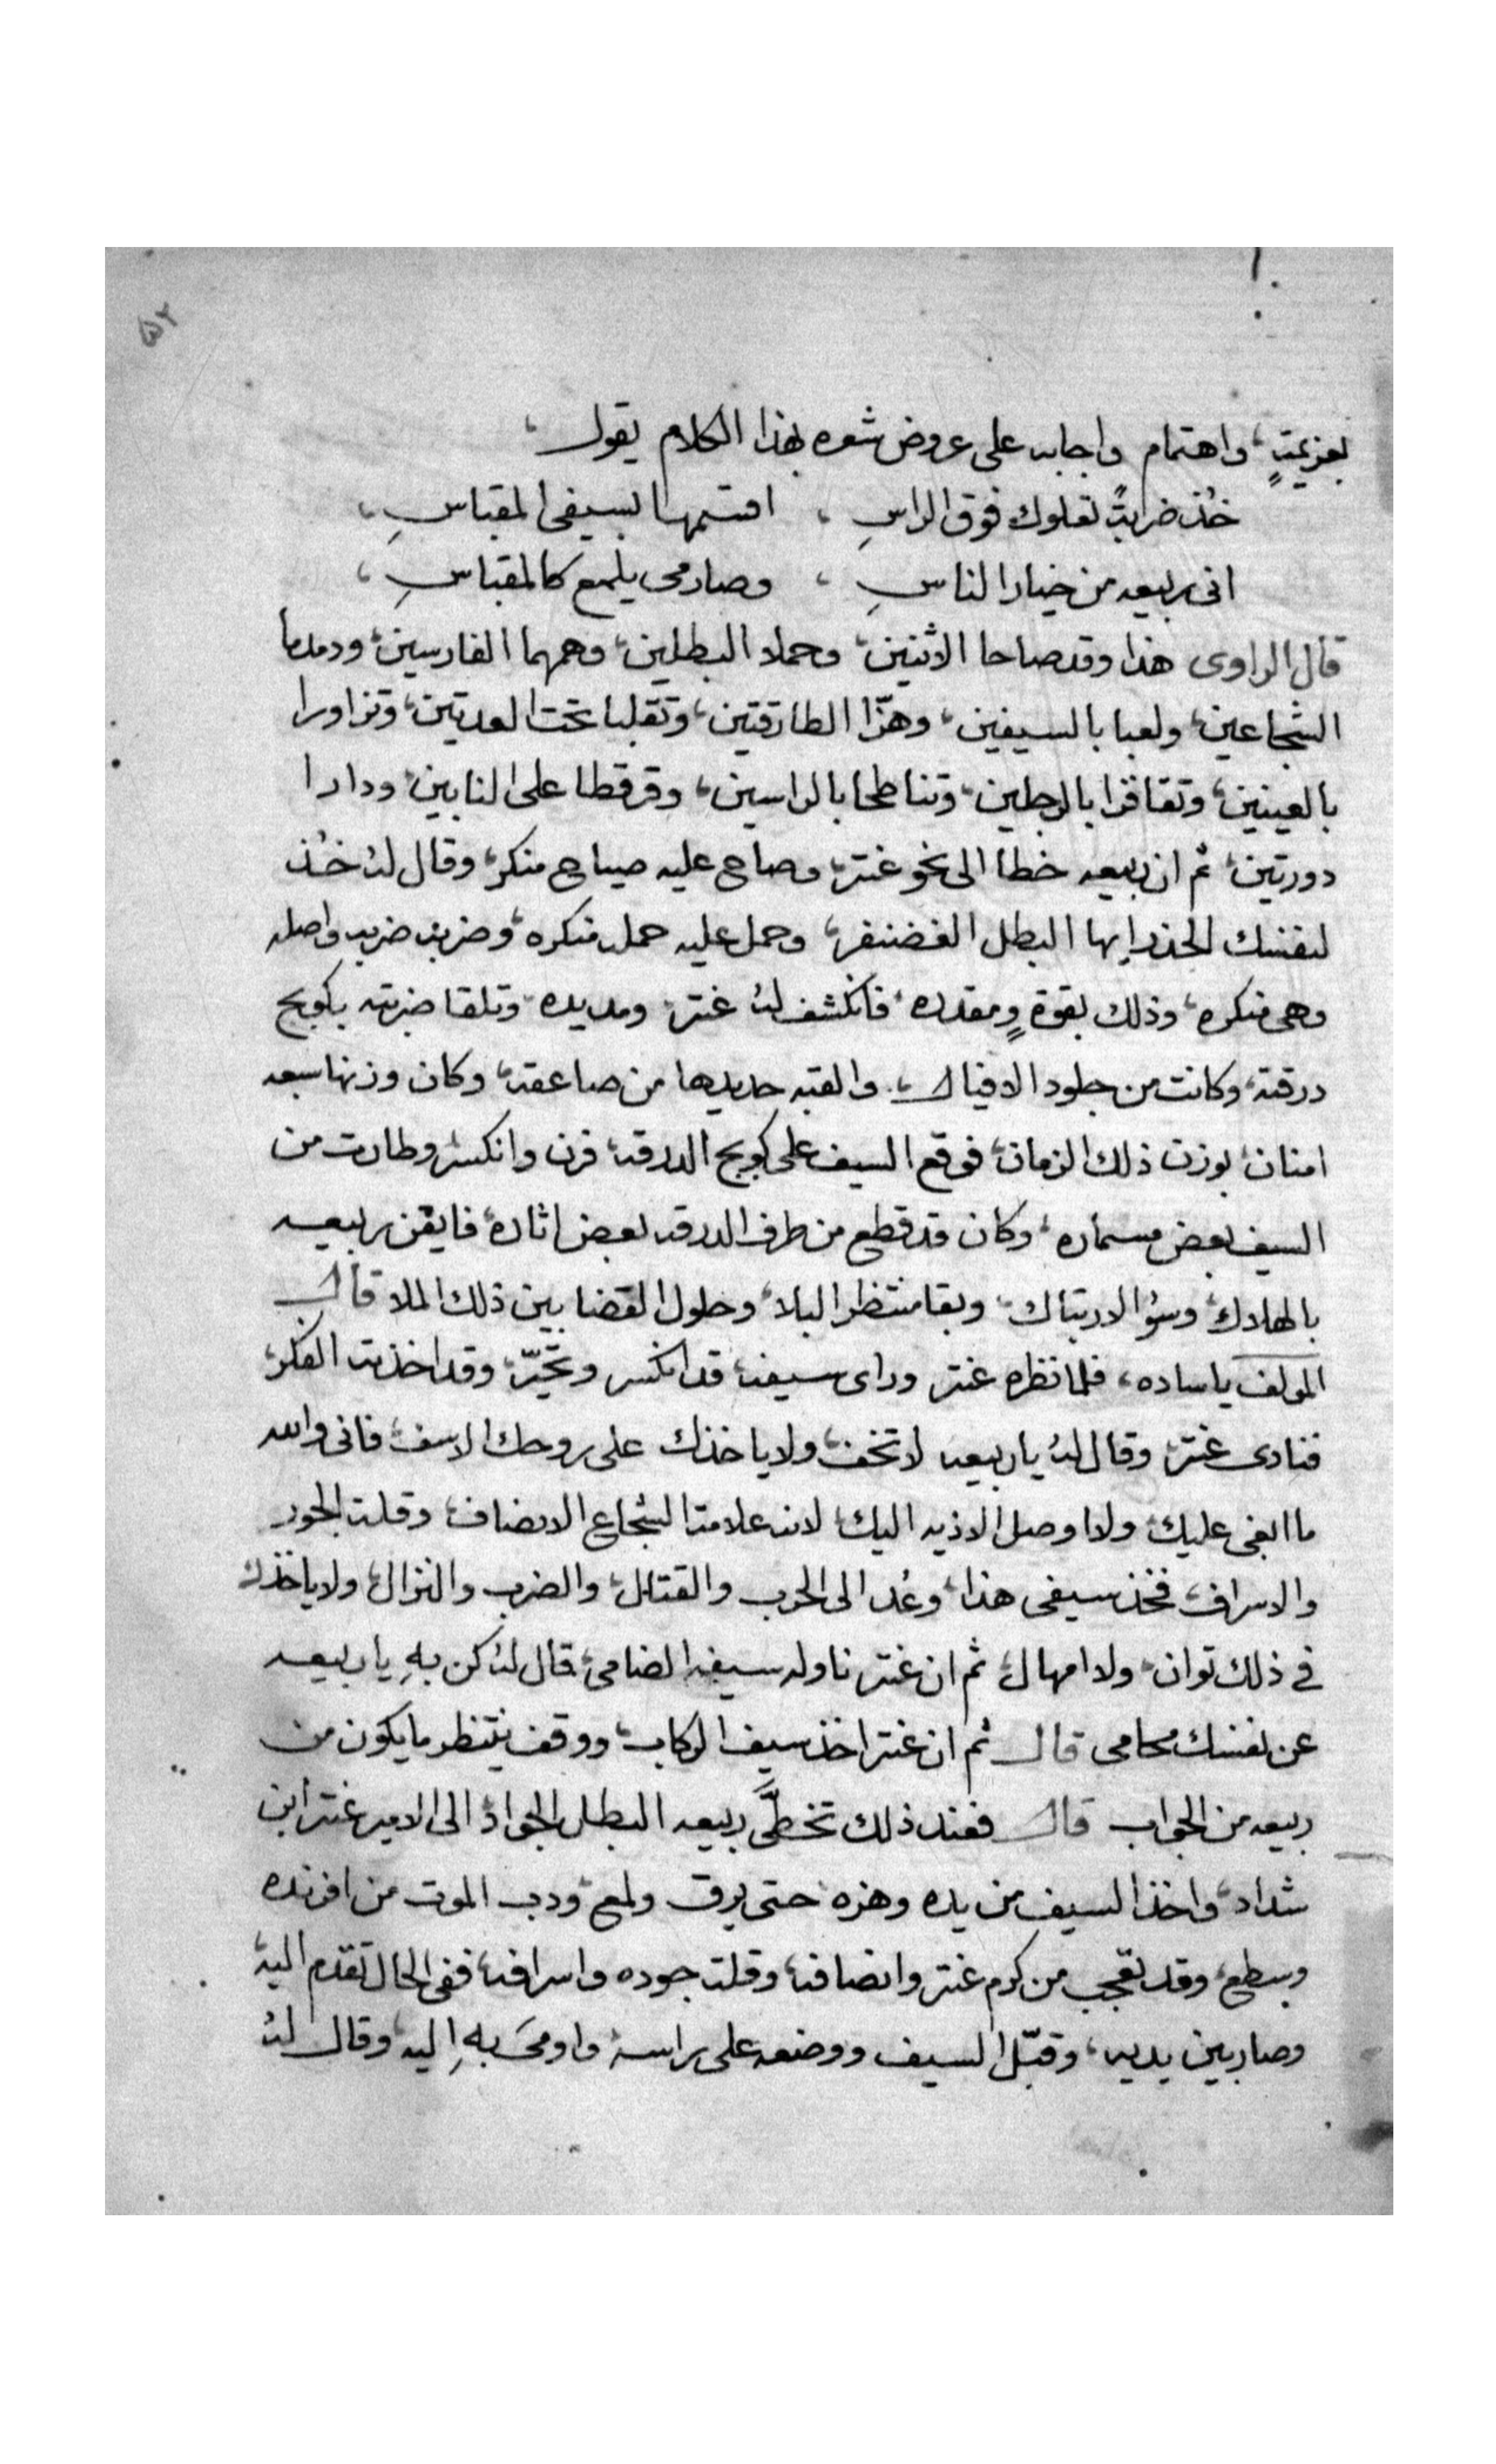 ٥٢
بعزيمتٍ، واهتمام واجابه على عروض شعره بهذا الكلام يقول،
خُذ ضرابتً تعلوك فوق الراسِ، اقسمها بسيفى المقباسِ،
انى ربيعه من خيار الناسِ، وصارمى يلمع كالمقباسِ،
قال الراوى هذا وقد صاحا الاثنين، وحملا البطلين، وهمهما الفارسين، ودمدما
الشجاعين، ولعبا بالسيفين، وهزّا الطارقتين، وتقلبا تحت العدتين، وتزاورا
بالعينين، وتقافزا بالرجلين، وتناطحا بالراسين، وقرقطا على النابين، ودارا
دورتين، ثم ان ربيعه خطا الى نحو عنتر، وصاح عليه صياح منكر، وقال لهُ خُذ
لنفسك الحذر ايها البطل الغضنفر، وحمل عليه حمله منكره، وضربه ضربه واصله
وهى منكره، وذلك بقوةٍ ومقدره، فانكشف لهُ عنتر، ومد يده، وتلقا ضربته بكوبج
درقته، وكانت من جلود الافيال، والقبه حديدها من صاعقه، وكان وزنها سبعه
امنان، بوزن ذلك الزمان، فوقع السيف على كوبج الدرقه، فرن وانكسر، وطارت من
السيف بعض مسماره، وكان قد قطع من طرف الدرقه بعض اثاره، فايقن ربيعه
بالهلاك، وسؤ الارتباك، وبقا منتظر البلا، وحلول القضا بين ذلك الملا قال
المولف ياساده، فلما نظره عنتر وراى سيفه، قد انكسر وتحيّر، وقد اخذته الفكر،
فنادى عنتر، وقال لهُ ياربيعه لا تخف، ولا ياخذك على روحك الاسف، فانى والله
ما ابغى عليك، ولا اوصل الاذيه اليك، لانه علامت الشجاع الانصاف، وقلت الجور
والاسراف، فخذ سيفى هذا، وعُد الى الحرب والقتال، والضرب والنزال، ولا ياخذك
فى ذلك توان، ولا امهال، ثم ان عنتر ناوله سيفه الضامى، قال لهُ كن بهِ ياربيعه
عن نفسك محامى قال ثم ان عنتر اخذ سيف الركاب، ووقف ينتظر ما يكون من
ربيعه من الجواب قال فعند ذلك تخطَّى ربيعه البطل الجواد، الى الامير عنتر ابن
شداد، واخذ السيف من يده وهزه حتى برق ولمع، ودب الموت من افرنده
وسطع، وقد تعجب من كرم عنتر وانصافه، وقلت جوره واسرافه، ففى الحال تقدم اليه،
وصار بين يديه، وقبّل السيف ووضعه على راسه، واومىَ بهِ اليه، وقال لهُ